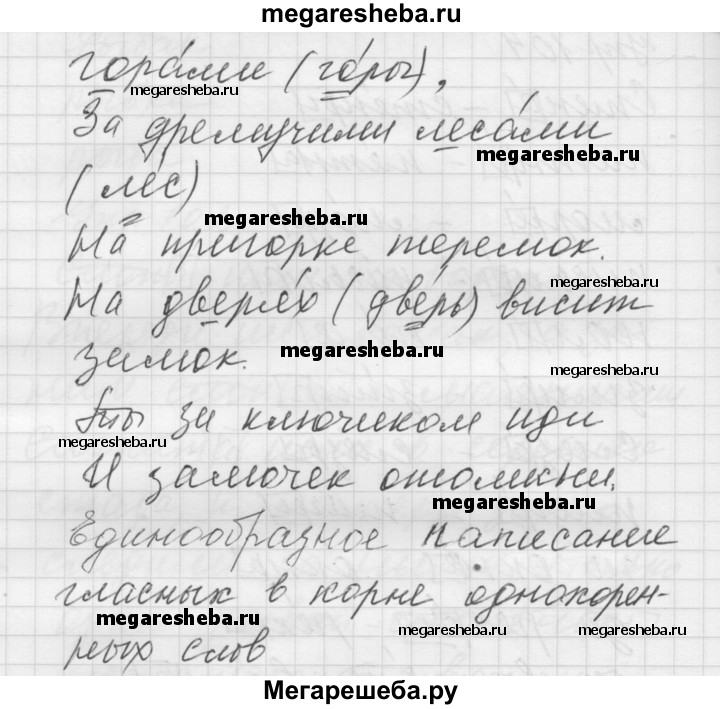 megaresheba.ru
гора́ми (го́ры),
megaresheba.ru
За дремучими леса́ми
megaresheba.ru
(лес)
megaresheba.ru
На пригорке теремок.
megaresheba.ru
На дверя́х (две́рь) висит
замок.
megaresheba.ru
megaresheba.ru
Ты за ключиком иди
megaresheba.ru
И замочек отомкни.
megaresheba.ru
Единообразное написание
гласных в корне однокорен-
megaresheba.ru
megaresheba.ru
megaresheba.ru
ных слов
Мегарешеба.ру